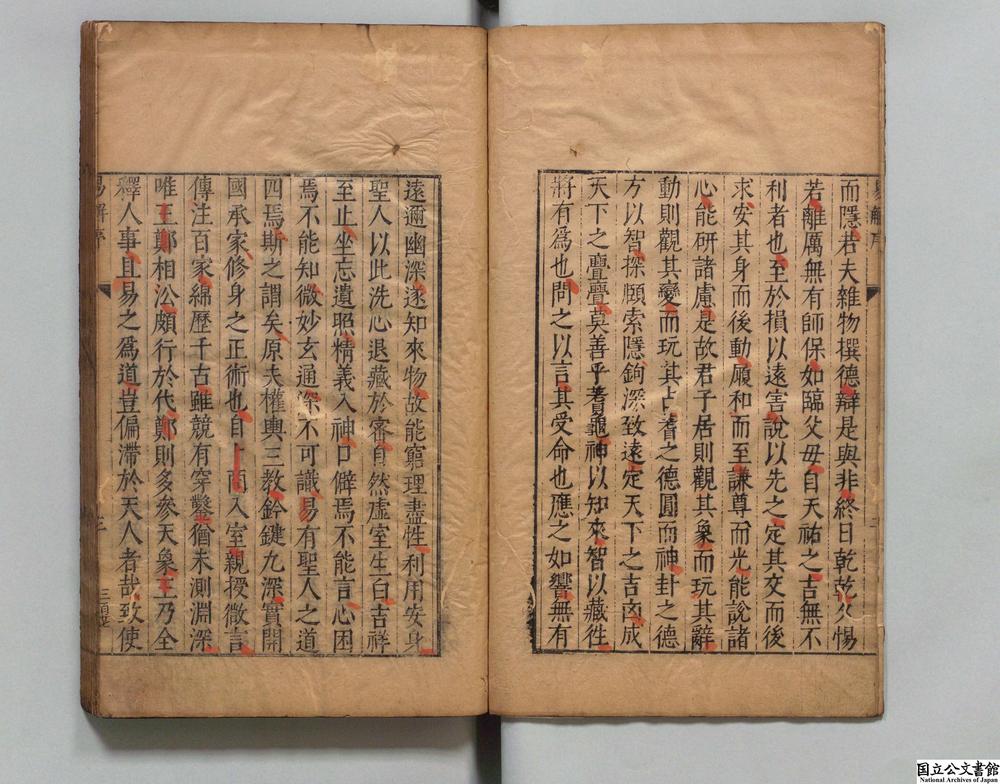 而隱若夫雜物撰德辯是與非終日乾乾夕惕
若離厲無有師保如臨父毋自天祐之吉無不
利者也至於損以遠害說以先之定其交而後
求安其身而後動履和而至謙尊而光能說諸
心能研諸慮是故君子居則觀其象而玩其辭
動則觀其變而玩其占蓍之德圓而神卦之德
方以智探賾索隱鉤深致遠定天下之吉凶成
天下之亹亹莫善乎蓍龜神以知來智以藏徃
將有爲也問之以言其受命也應之如響無有
易解序
遠邇幽深遂知來物故能窮理盡性利用安身
聖人以此洗心退藏於密自然虛室生白吉祥
至止坐忘遺照精義入神口僻焉不能言心困
焉不能知微妙玄通深不可識易有聖人之道
四焉斯之謂矣原夫權輿三教鈐鍵九深實開
國承家修身之正術也自卜商入室親授微言
傳注百家綿歷千古雖競有穿鑿猶未測淵深
唯王鄭相沿頗行於代鄭則多參天象王乃全
釋人事且易之爲道豈偏滯於天人者哉致使
易解序
三
国立公文書館
National Archives of Japan